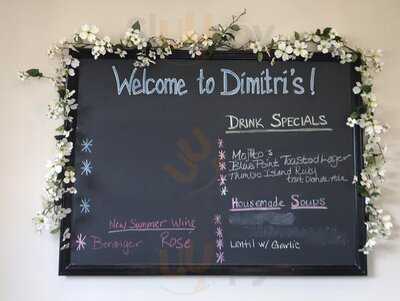 Welcome to Dimitri's!
DRINK SPECIALS
* Mojito's
* Blue Point Toasted Lager
* Thimble Island Ruby
*
HOUSEMADE SOUPS
* Lentil w/ Garlic
New Summer Wine
* Beringer Rose